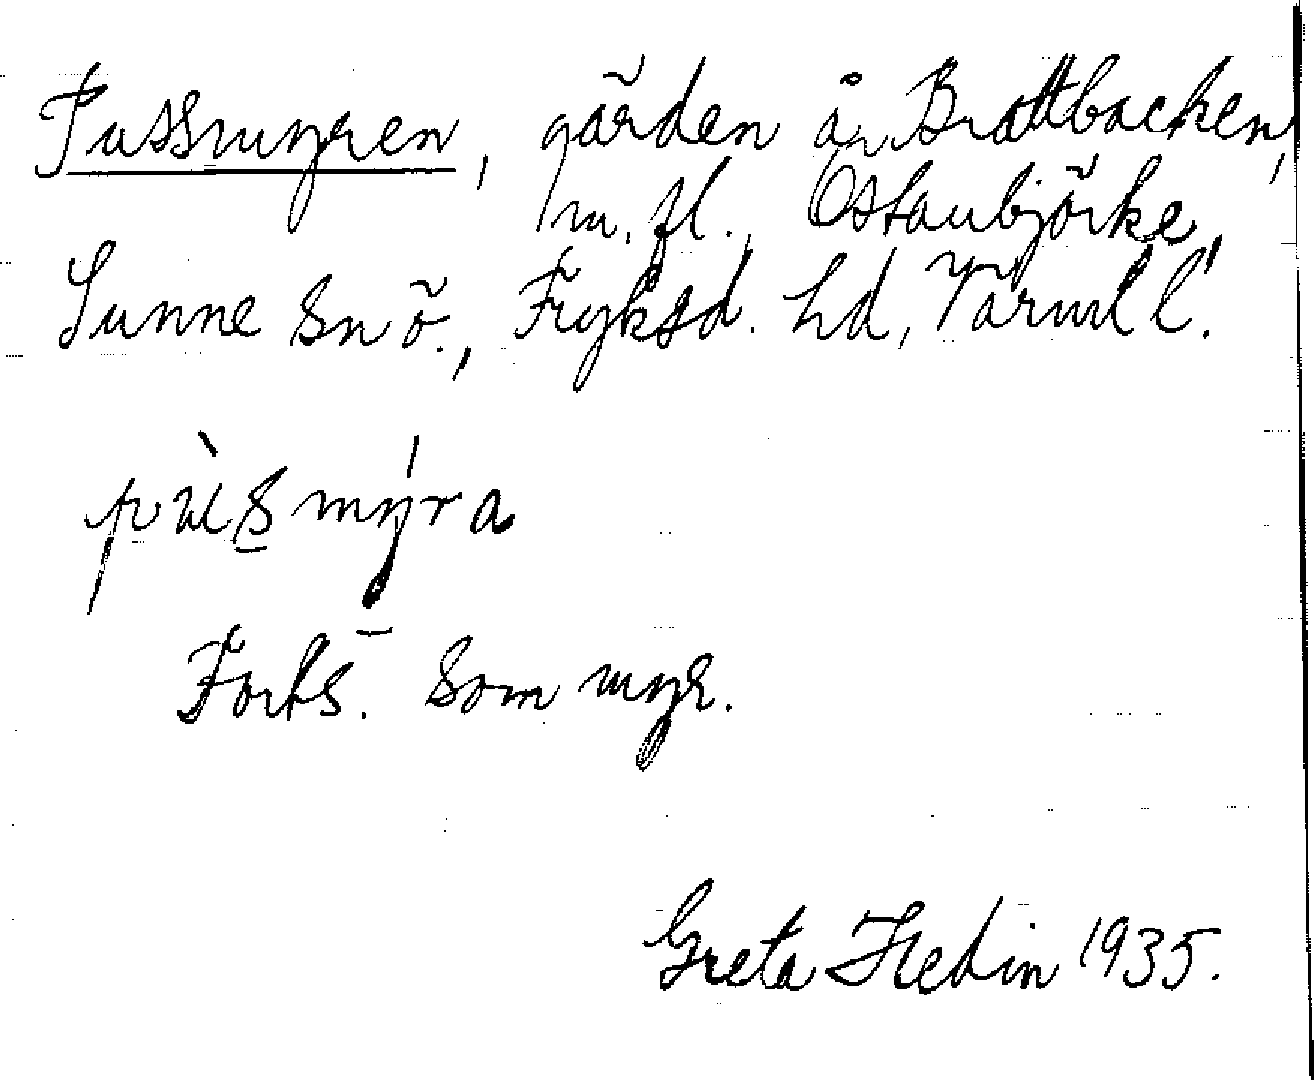 Pussmyren, gärden å Brattbacken,
m. fl., Östanbjörke,
Sunne sn ö., Fryksd. hd, Värml l.
pùs̠mýra
Forts. som myr.
Greta Hedin 1935.